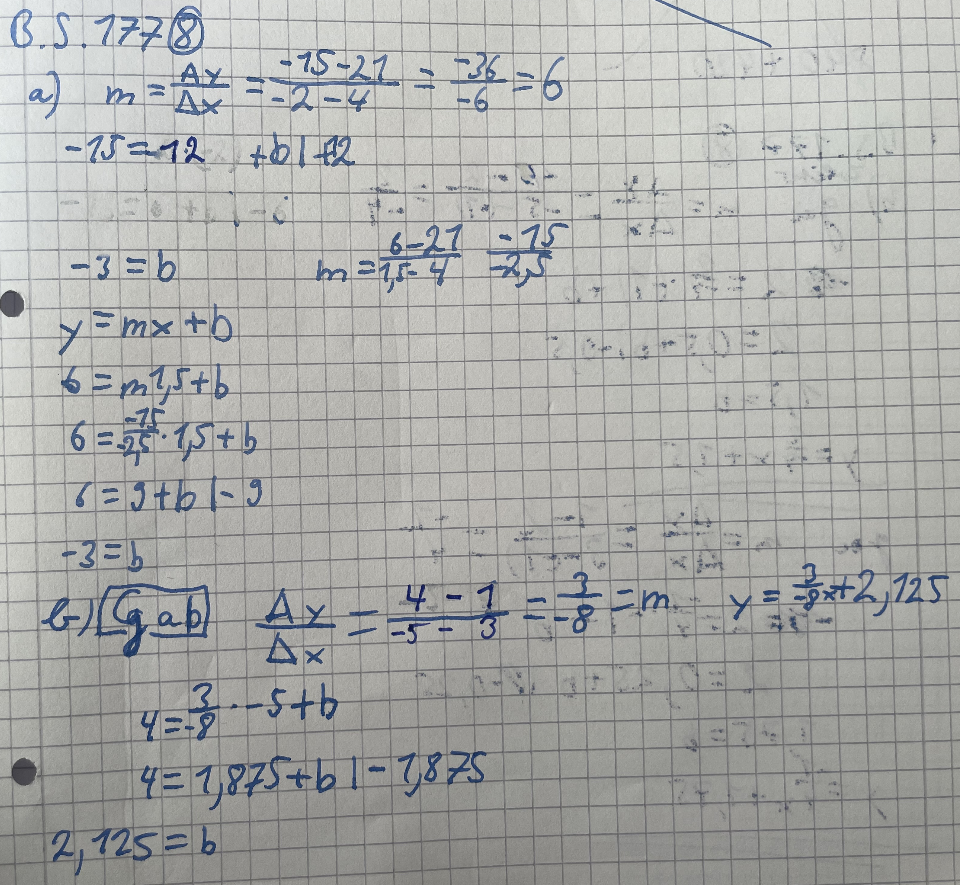 B.S. 177 8
a) m = Δy/Δx = (-15-21)/(-2-4) = -36/-6 = 6
-15 = -12 +b | +12
-3 = b m = (6-21)/(1,5-4) -15/-2,5
y = mx + b
6 = m1,5 + b
6 = -15/-2,5 · 1,5 + b
6 = 9 + b | - 9
-3 = b
b) g ab Δy/Δx = (4 - 1)/(-5 - 3) = 3/-8 = m y = 3/-8 x + 2,125
4 = 3/-8 · -5 + b
4 = 1,875 + b | - 1,875
2,125 = b